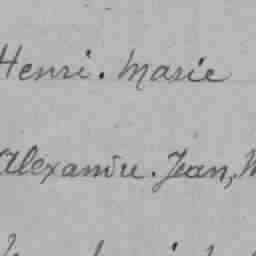 Henri. Marie
Alexandre. Jean,